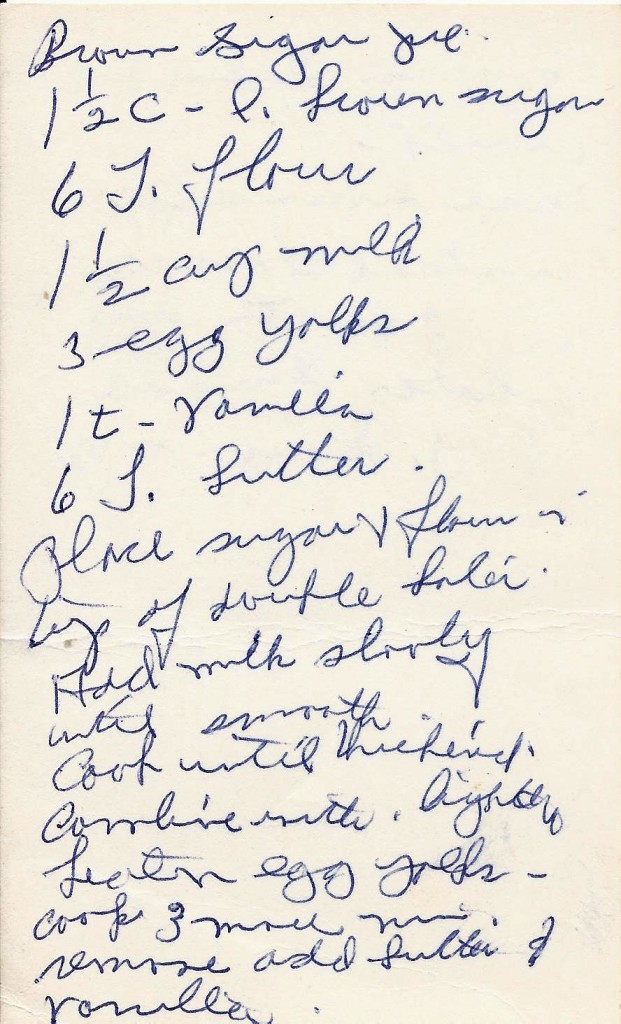 Brown Sugar pie.
1 1/2 c - l. brown sugar
6 T. flour
1 1/2 cup milk
3 egg yolks
1 t - vanilla
6 T. butter.
Place sugar & flour in
top of double boiler.
Add milk slowly
until smooth.
Cook until thickened.
Combine with. lightly
beaten egg yolks -
cook 3 more min.
remove add butter &
vanilla.